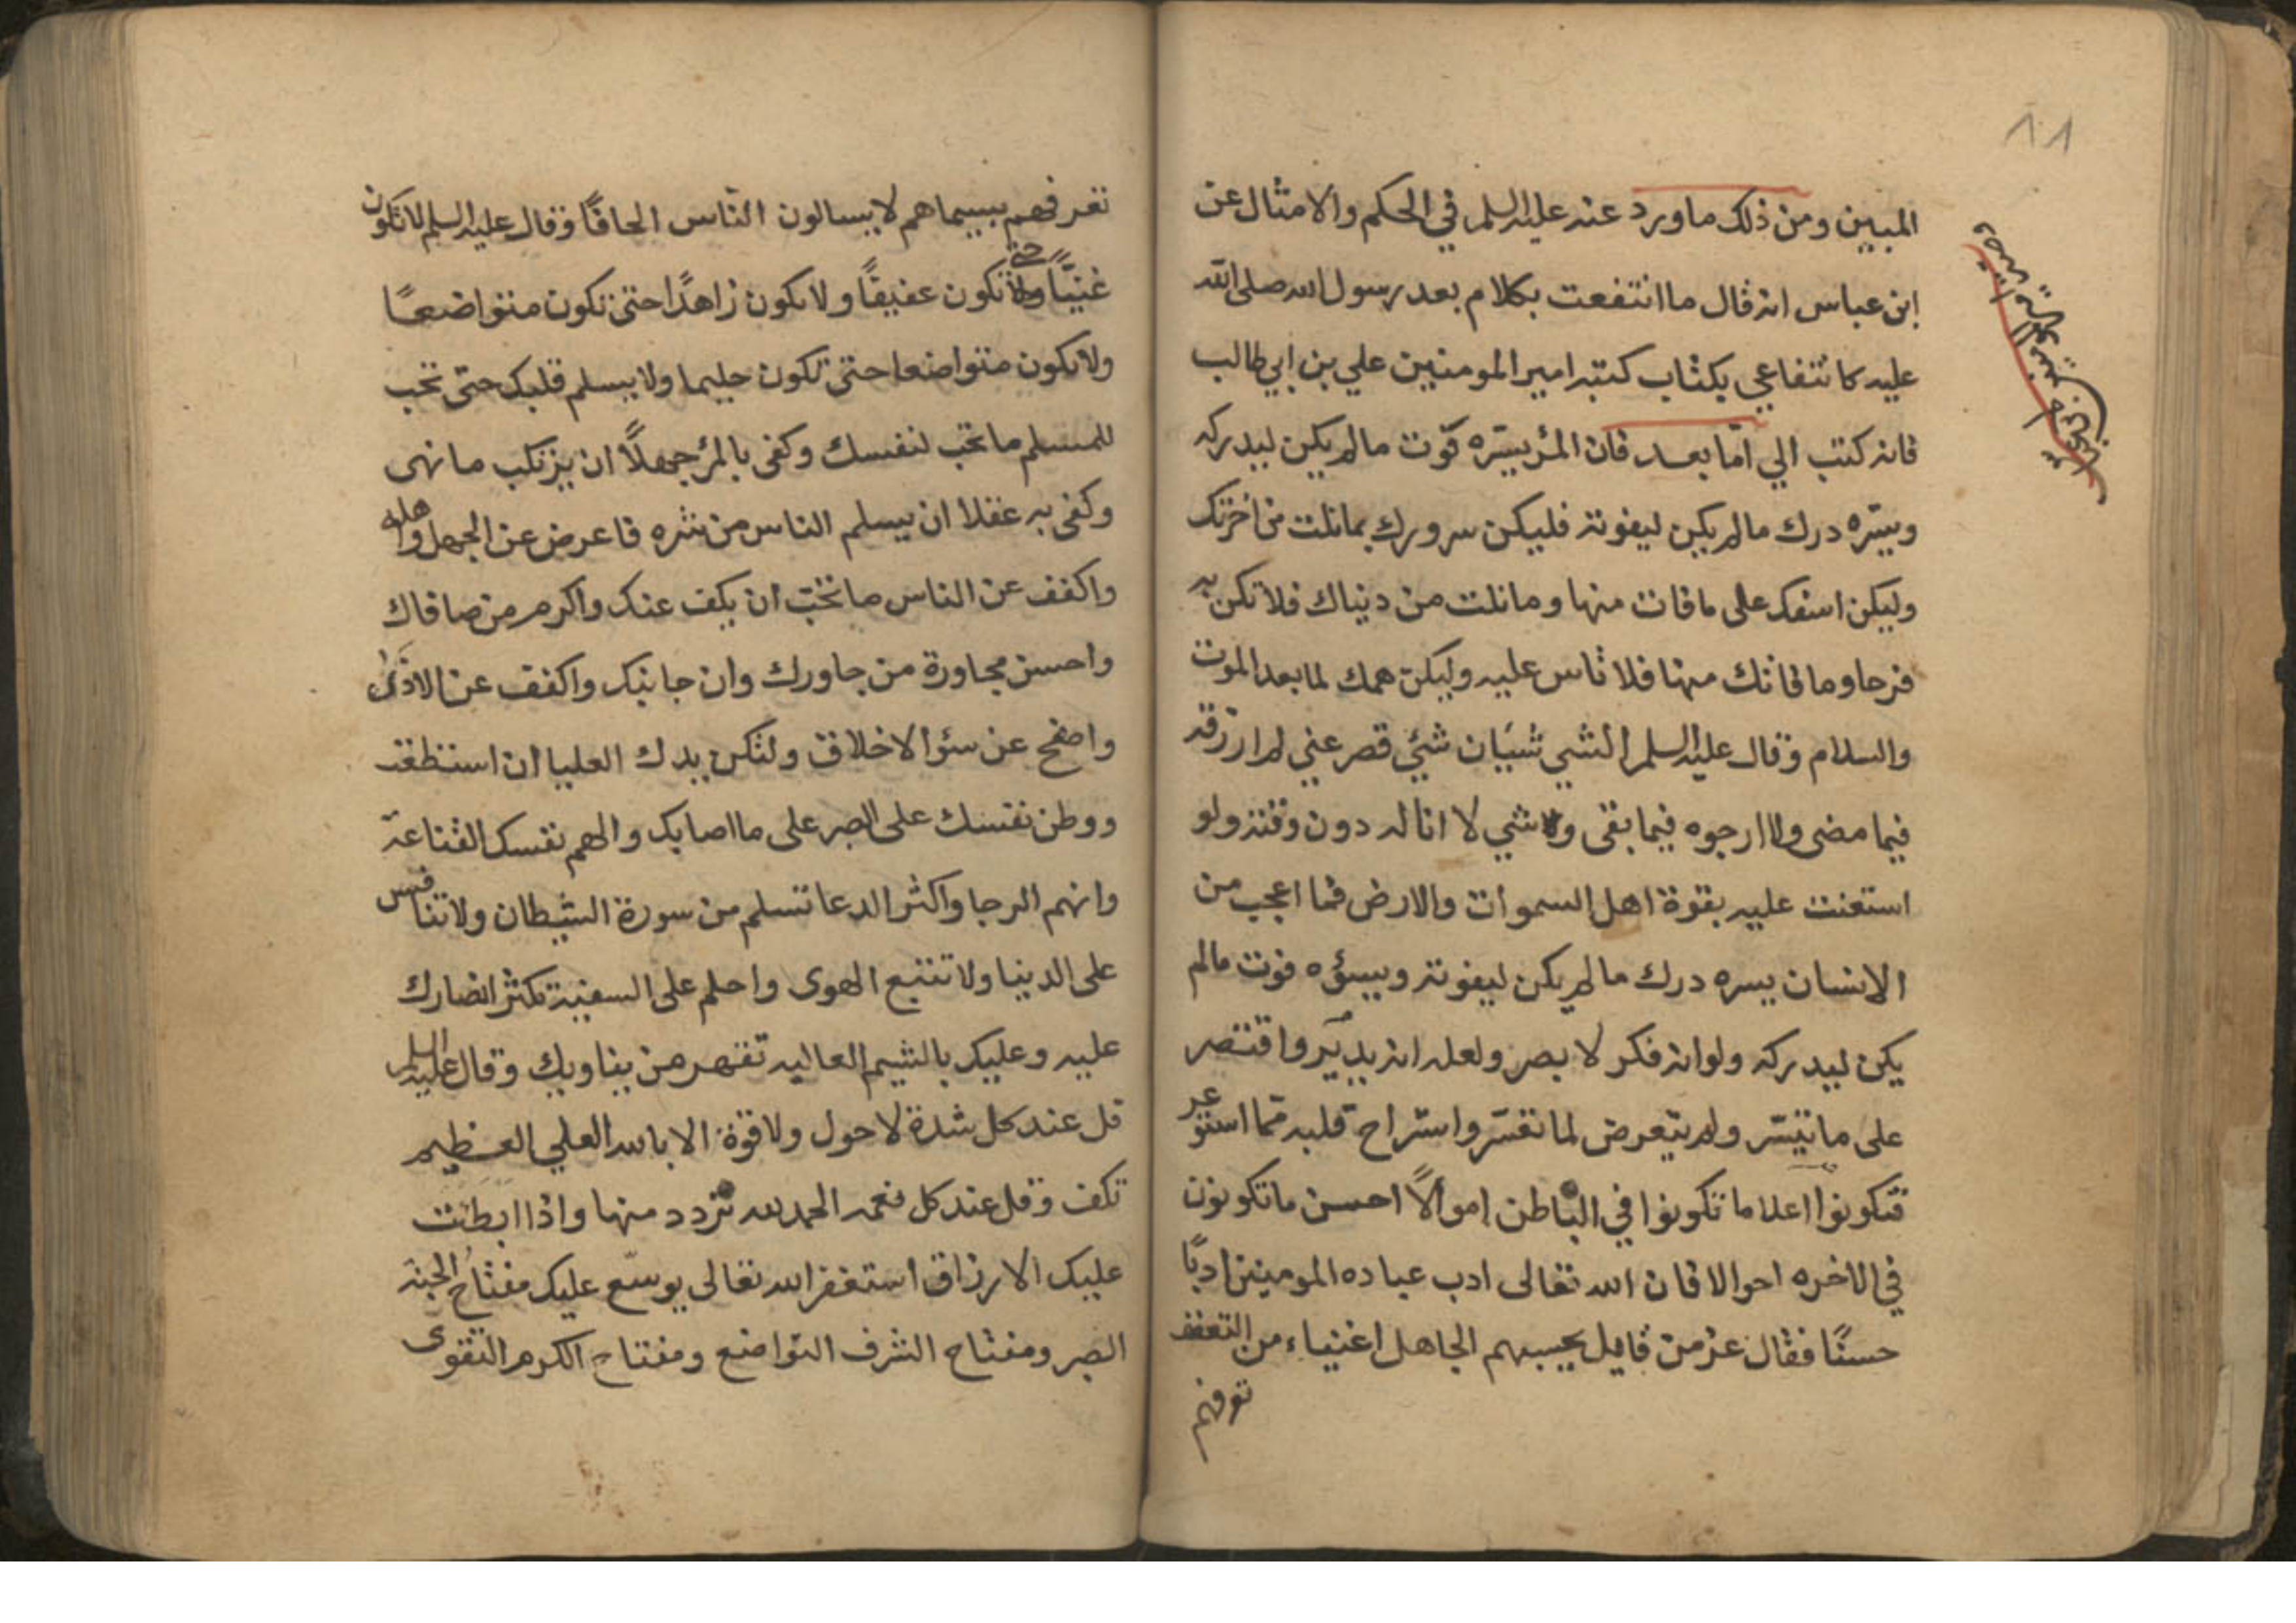 ١٠١
المبين ومن ذلك ماورد عنه عليه السلم في الحكم والامثال عن
ابن عباس انه قال ماانتفعت بكلام بعد رسول الله صلى الله
عليه كانتفاعي بكتاب كتبه امير المومنين علي بن ابي طالب
فانه كتب الي امّا بعد فان المرٔ يسّره فوت مالم يكن ليدركه
ويسّره درك مالم يكن ليفوته فليكن سرورك بمانلت من اخرتك
وليكن اسفك على مافات منها ومانلت من دنياك فلاتكن به
فرحا ومافاتك منها فلا تاس عليه وليكن همك لمابعد الموت
والسلام وقال عليه السلم الشي شئان شئ قصر عني لم ارزقه
فيما مضى ولا ارجوه فيما بقى وشي لا اناله دون وقته ولو
استعنت عليه بقوة اهل السموات والارض فما اعجب من
الانسان يسره درك مالم يكن ليفوته ويسؤه فوت مالم
يكن ليدركه ولوانه فكر لابصر ولعلم انه يدبّر واقتصر
على ماتيسّر ولم يتعرض لما تعسّر واستراح قلبه مما استوعر
فتكونوا اعلاما تكونوا في الباطن اموالًا احسن ماتكونون
في الاخره احوالا فان الله تعالى ادب عباده المومنين ادبًا
حسنًا فقال عز من قايل يحسبهم الجاهل اغنياء من التعفف
تعرفهم
تعرفهم بسيماهم لايسالون الناس الحافًا وقال عليه السلم لاتكون
غنيًّا حتى تكون عفيفًا ولاتكون زاهدًا حتى تكون متواضعًا
ولاتكون متواضعا حتى تكون حليما ولايسلم قلبك حتى تحب
للمسلم ماتحب لنفسك وكفى بالمرٔ جهلًا ان يرتكب مانهى
وكفى به عقلا ان يسلم الناس من شره فاعرض عن الجهل واهله
واكفف عن الناس ماتحب ان يكف عنك واكرم من صافاك
واحسن مجاورة من جاورك وان جانبك واكفف عن الاذى
واصفح عن سؤ الاخلاق ولتكن يدك العليا ان استطعت
ووطن نفسك على الصبر على مااصابك والهم نفسك القناعة
واتهم الرجا واكثر الدعا تسلم من سورة الشيطان ولاتنافس
على الدنيا ولاتتبع الهوى واحلم على السفيه تكثر انصارك
عليه وعليك بالشيم العاليه تقهر من يناويك وقال عليه السلم
قل عند كل شدة لاحول ولاقوة الا بالله العلي العظيم
تكف وقل عند كل نعمه الحمد لله تزدد منها واذا ابطئت
عليك الارزاق استغفر الله تعالى يوسّع عليك مفتاح الجنة
الصبر ومفتاح الشرف التواضع ومفتاح الكرم التقوى